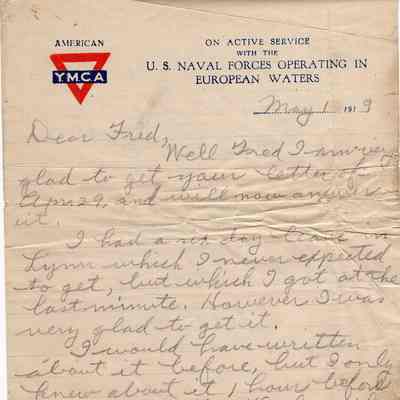 AMERICAN
YMCA
ON ACTIVE SERVICE
WITH THE
U. S. NAVAL FORCES OPERATING IN
EUROPEAN WATERS
May 1 1919
Dear Fred,
Well Fred I am very
glad to get your letter of
Apr. 29, and will now answer
it.
I had a day leave in
Lynn which I never expected
to get, but which I got at the
last minute. However I was
very glad to get it.
I would have written
about it before, but I only
knew about it 1 hour before